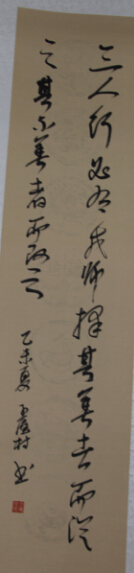 三人行必有我师择其善者而从
之其不善者而改之
乙未夏 村书